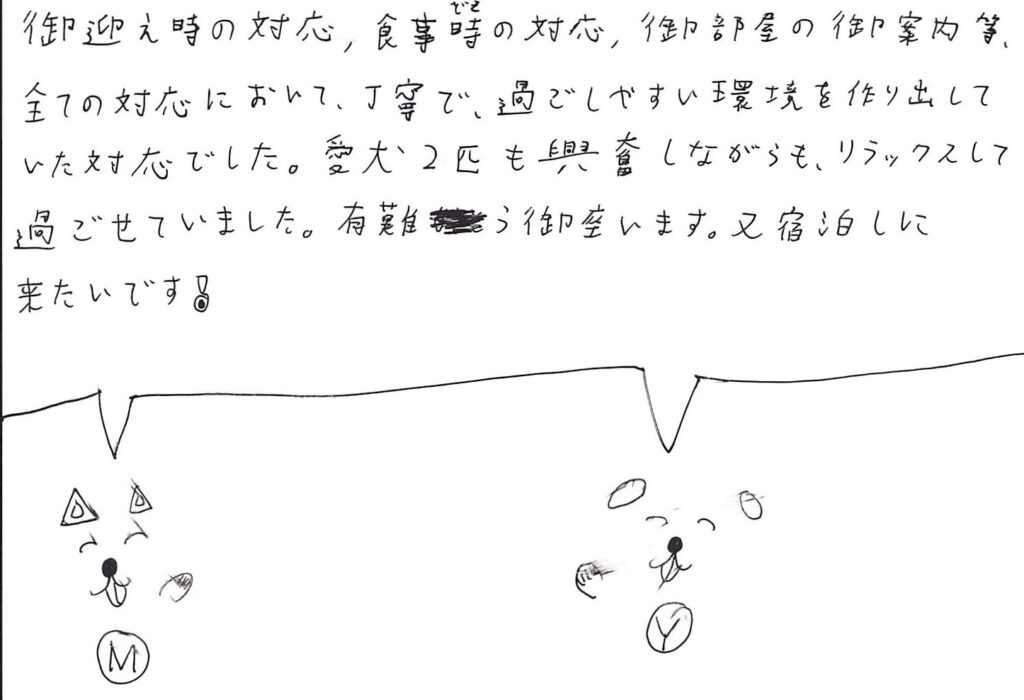 御迎え時の対応, 食事時の対応, 御部屋の御案内等、
全ての対応において、丁寧で、過ごしやすい環境を作り出して
いた対応でした。愛犬2匹も興奮しながらも、リラックスして
過ごせていました。有難う御座います。又宿泊しに
来たいです!
M
Y